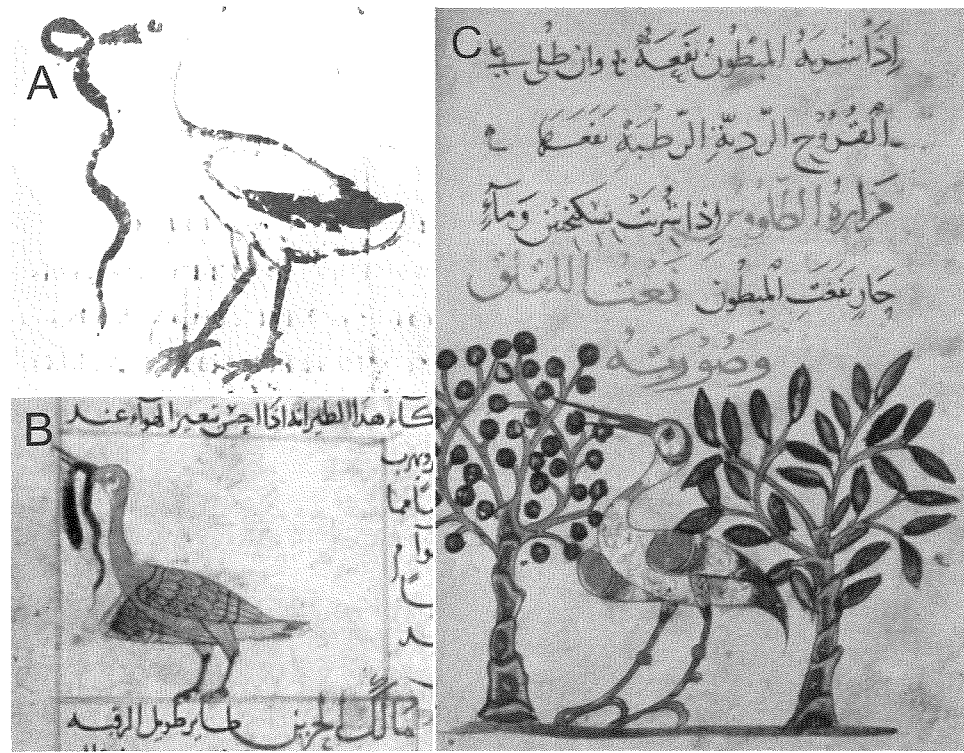 A
B
كآء هذا الطير انه اذا احس بتغير الهوآء عند
مالك الحزين طاير طويل الرقبه
C
إِذَا شَرِبَهُ المَبْطُونُ نَفَعَهُ وان طُلى
القُرُوْحِ الرَّدِيَّةِ الرَّطبَةِ نَفَعَهَا
مَرَارةُ الطَّاووس اِذا شُرِبَتْ بِسِكَنجبين وَمآءٍ
حَارٍ نفَعَتِ المَبْطُونَ نَعْتُ اللقلق
وَصُوْرَتُهُ